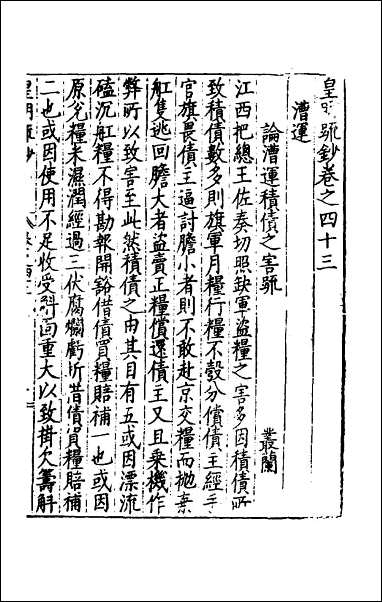 皇明疏鈔卷之四十三
漕運
論漕運積債之害疏 叢蘭
江西把總王佐奏切照缺軍盜糧之害多因積債所
致積債數多則旗軍月糧行糧不彀分償債主經手
官旗畏債主逼討膽小者則不敢赴京交糧而拋棄
舡隻逃回膽大者盜賣正糧償還債主又且乗機作
弊所以致害至此然積債之由其目有五或因漂流
磕沉舡糧不得勘報開豁借債買糧賠補一也或因
原兊糧米濕潤經過三伏腐爛虧折借債買糧賠補
二也或因使用不足收受斛面重大以致掛欠籌斛
皇明疏鈔 卷